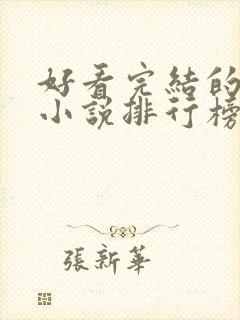 好看完結的
小說排行榜
張新華